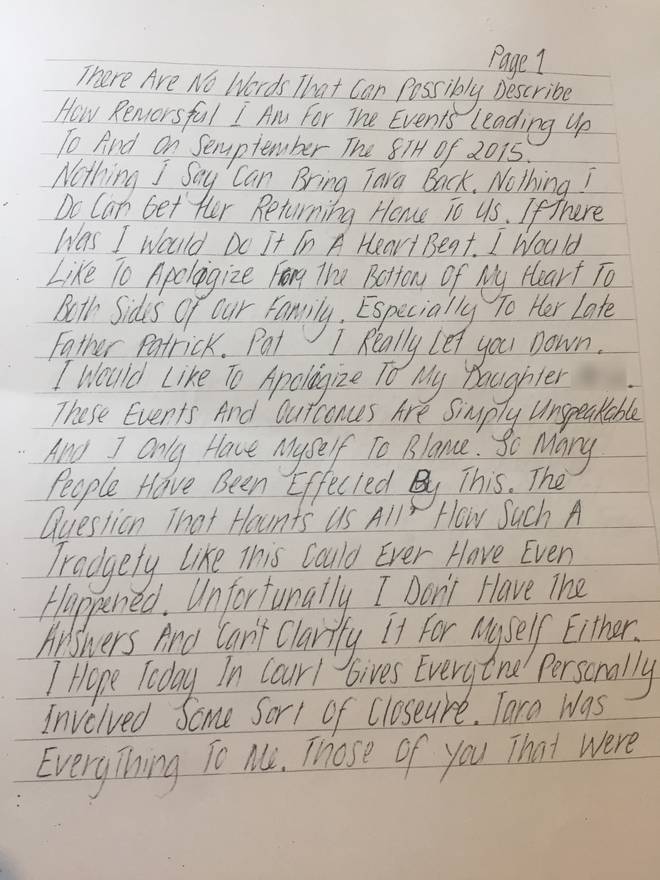 Page 1
There Are No Words That Can Possibly Describe
How Remorsful I Am For The Events Leading Up
To And On Semptember The 8TH Of 2015.
Nothing I Say Can Bring Tara Back. Nothing I
Do Can Get Her Returning Home To Us. If There
Was I Would Do It In A Heart Beat. I Would
Like To Apologize From The Bottom Of My Heart To
Both Sides Of Our Family. Especially To Her Late
Father Patrick. Pat I Really Let you Down.
I Would Like To Apologize To My Daughter .
These Events And Outcomes Are Simply Unspeakable
And I Only Have Myself To Blame. So Many
People Have Been Effected By This. The
Question That Haunts Us All? How Such A
Tradgety Like This Could Ever Have Even
Happened. Unfortunatly I Don't Have The
Answers And Can't Clarify It For Myself Either.
I Hope Today In Court Gives Everyone Personally
Involved Some Sort Of Closeure. Tara Was
EveryThing To Me. Those Of you That Were